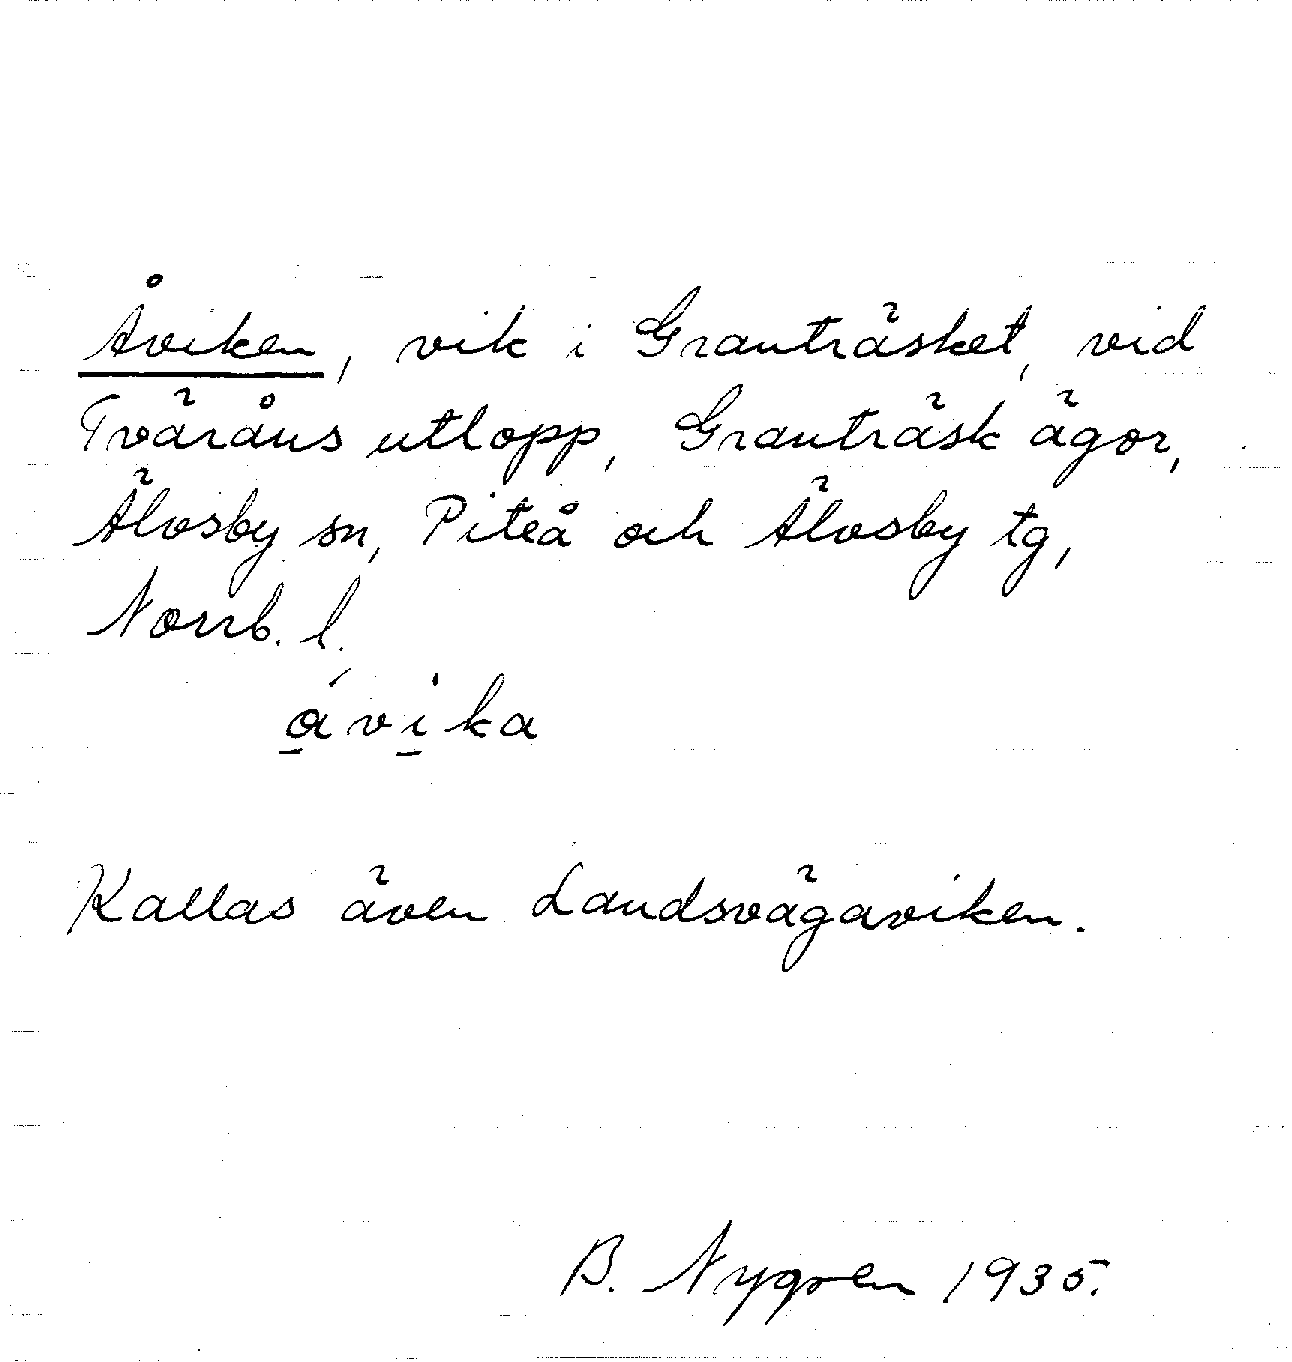 Åviken, vik i Granträsket, vid
Tväråns utlopp, Granträsk ägor,
Älvsby sn, Piteå och Älvsby tg,
Norrb. l.
á̱vi̱ka
Kallas även Landsvägaviken.
B. Nygren 1935.